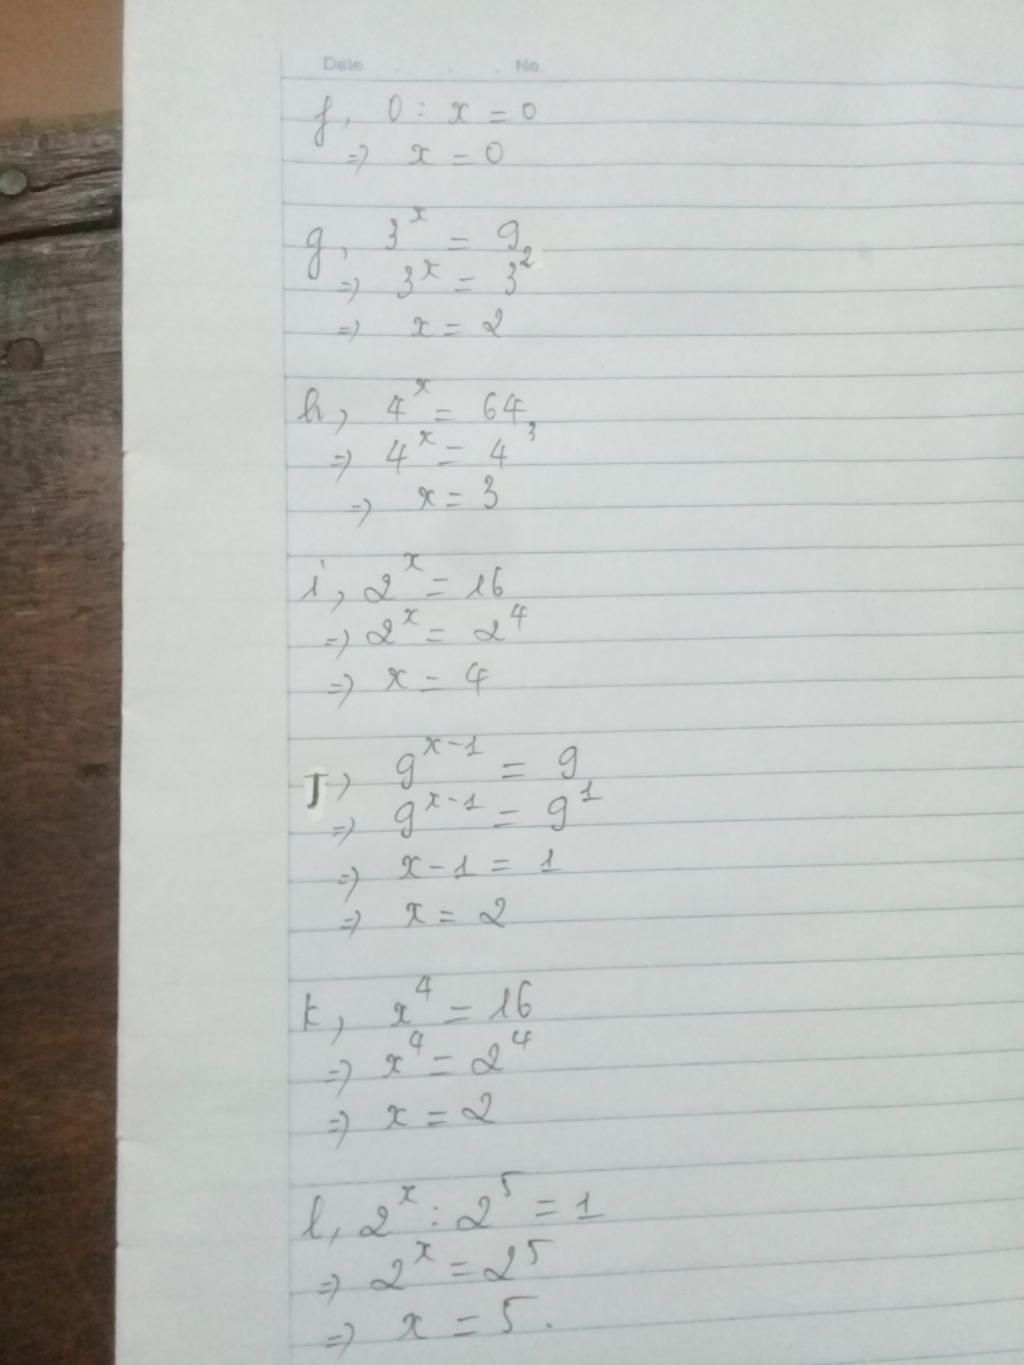 Date . . . No.
f, 0 : x = 0
=> x = 0
g, 3^x = 9
=> 3^x = 3^2
=> x = 2
h, 4^x = 64
=> 4^x = 4^3
=> x = 3
i, 2^x = 16
=> 2^x = 2^4
=> x = 4
J, 9^{x-1} = 9
=> 9^{x-1} = 9^1
=> x-1 = 1
=> x = 2
k, x^4 = 16
=> x^4 = 2^4
=> x = 2
l, 2^x : 2^5 = 1
=> 2^x = 2^5
=> x = 5.